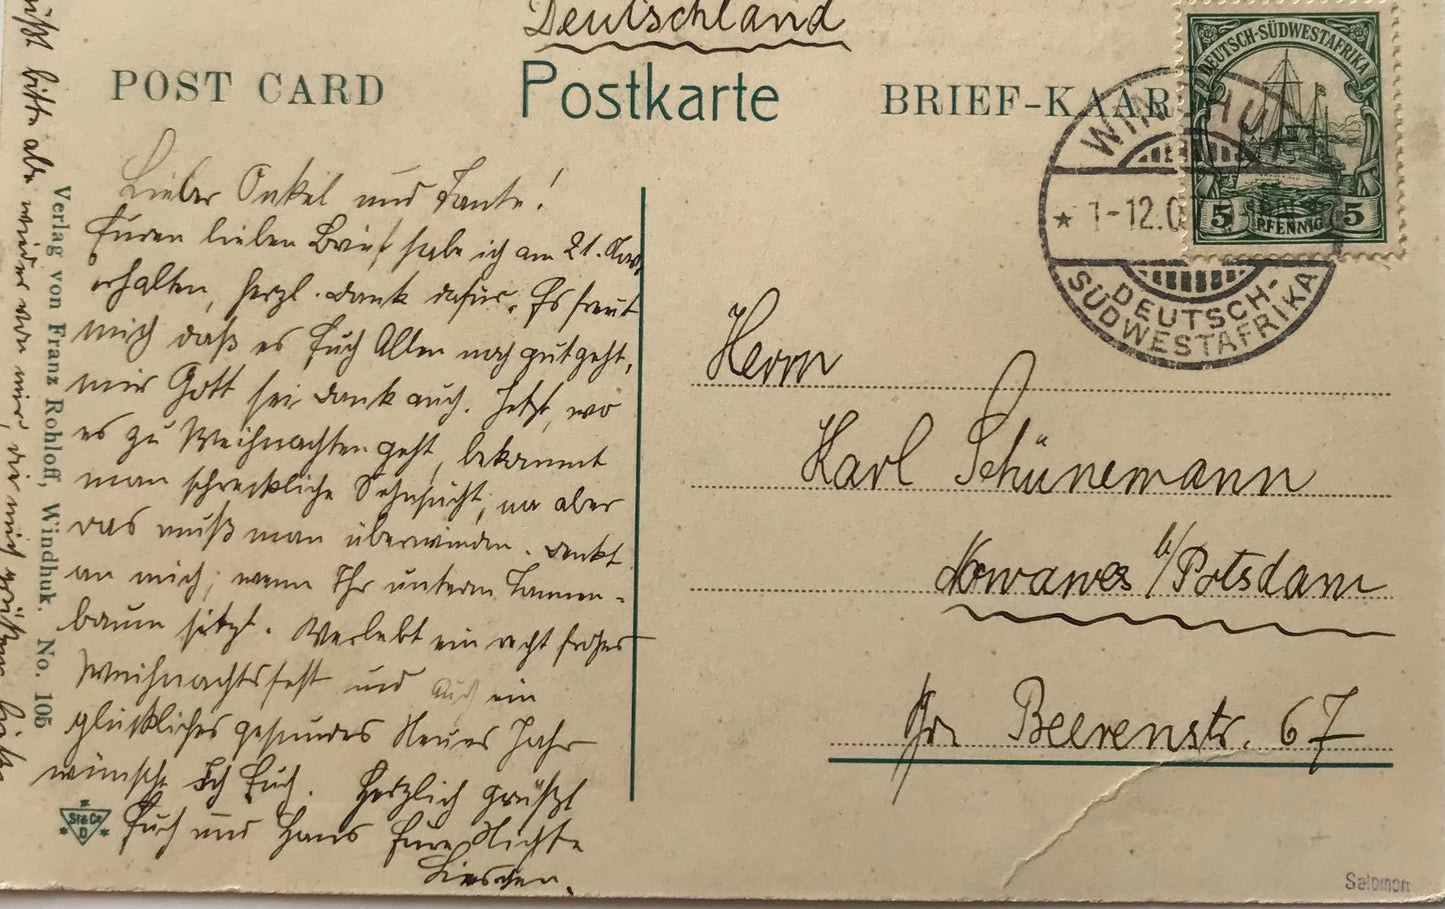 Deutschland
POST CARD
Postkarte
BRIEF-KAAR
DEUTSCH-SÜDWESTAFRIKA
5 PFENNIG 5
WINDHUK
1-12.0
DEUTSCH-
SÜDWESTAFRIKA
Lieber Onkel und Tante!
Euren lieben Brief habe ich am 21. Nov.
erhalten, herzl. Dank dafür. Es freut
mich daß es Euch Allen noch gut geht,
mir Gott sei Dank auch. Jetzt, wo
es zu Weihnachten geht, bekommt
man schreckliche Sehnsucht, na aber
das muß man überwinden. Denkt
an mich, wenn Ihr unterm Tannen-
baum sitzt. Verlebt ein recht frohes
Weihnachtsfest und auch ein
glückliches gesundes Neues Jahr
wünsche Ich Euch. Herzlich grüßt
Euch und Hans Eure Nichte
Lieschen.
bitte alle wieder von mir, die mich
Verlag von Franz Rohloff, Windhuk. No. 105
St&Co
D
Herrn
Karl Schünemann
Nowawes b/Potsdam
Gr. Beerenstr. 67
Salomon